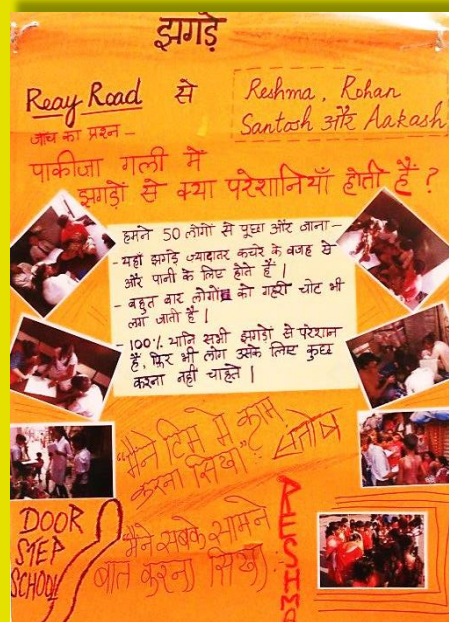 झगड़े
Reay Road से
Reshma, Rohan
Santosh और Aakash
जाँच का प्रश्न –
पाकीजा गली में
झगड़ों से क्या परेशानियाँ होती हैं ?
हमने 50 लोगों से पूछा और जाना –
- यहाँ झगड़े ज्यादातर कचरे के वजह से
और पानी के लिए होते हैं |
- बहुत बार लोगों को गहरी चोट भी
लग जाती है |
- 100% यानि सभी झगड़ों से परेशान
हैं, फिर भी लोग उसके लिए कुछ
करना नहीं चाहते |
"मैने टिम मे काम
करना सिखा"
संतोष
"मैने सबके सामने
बात करना सिखा
RESHMA
DOOR
STEP
SCHOOL